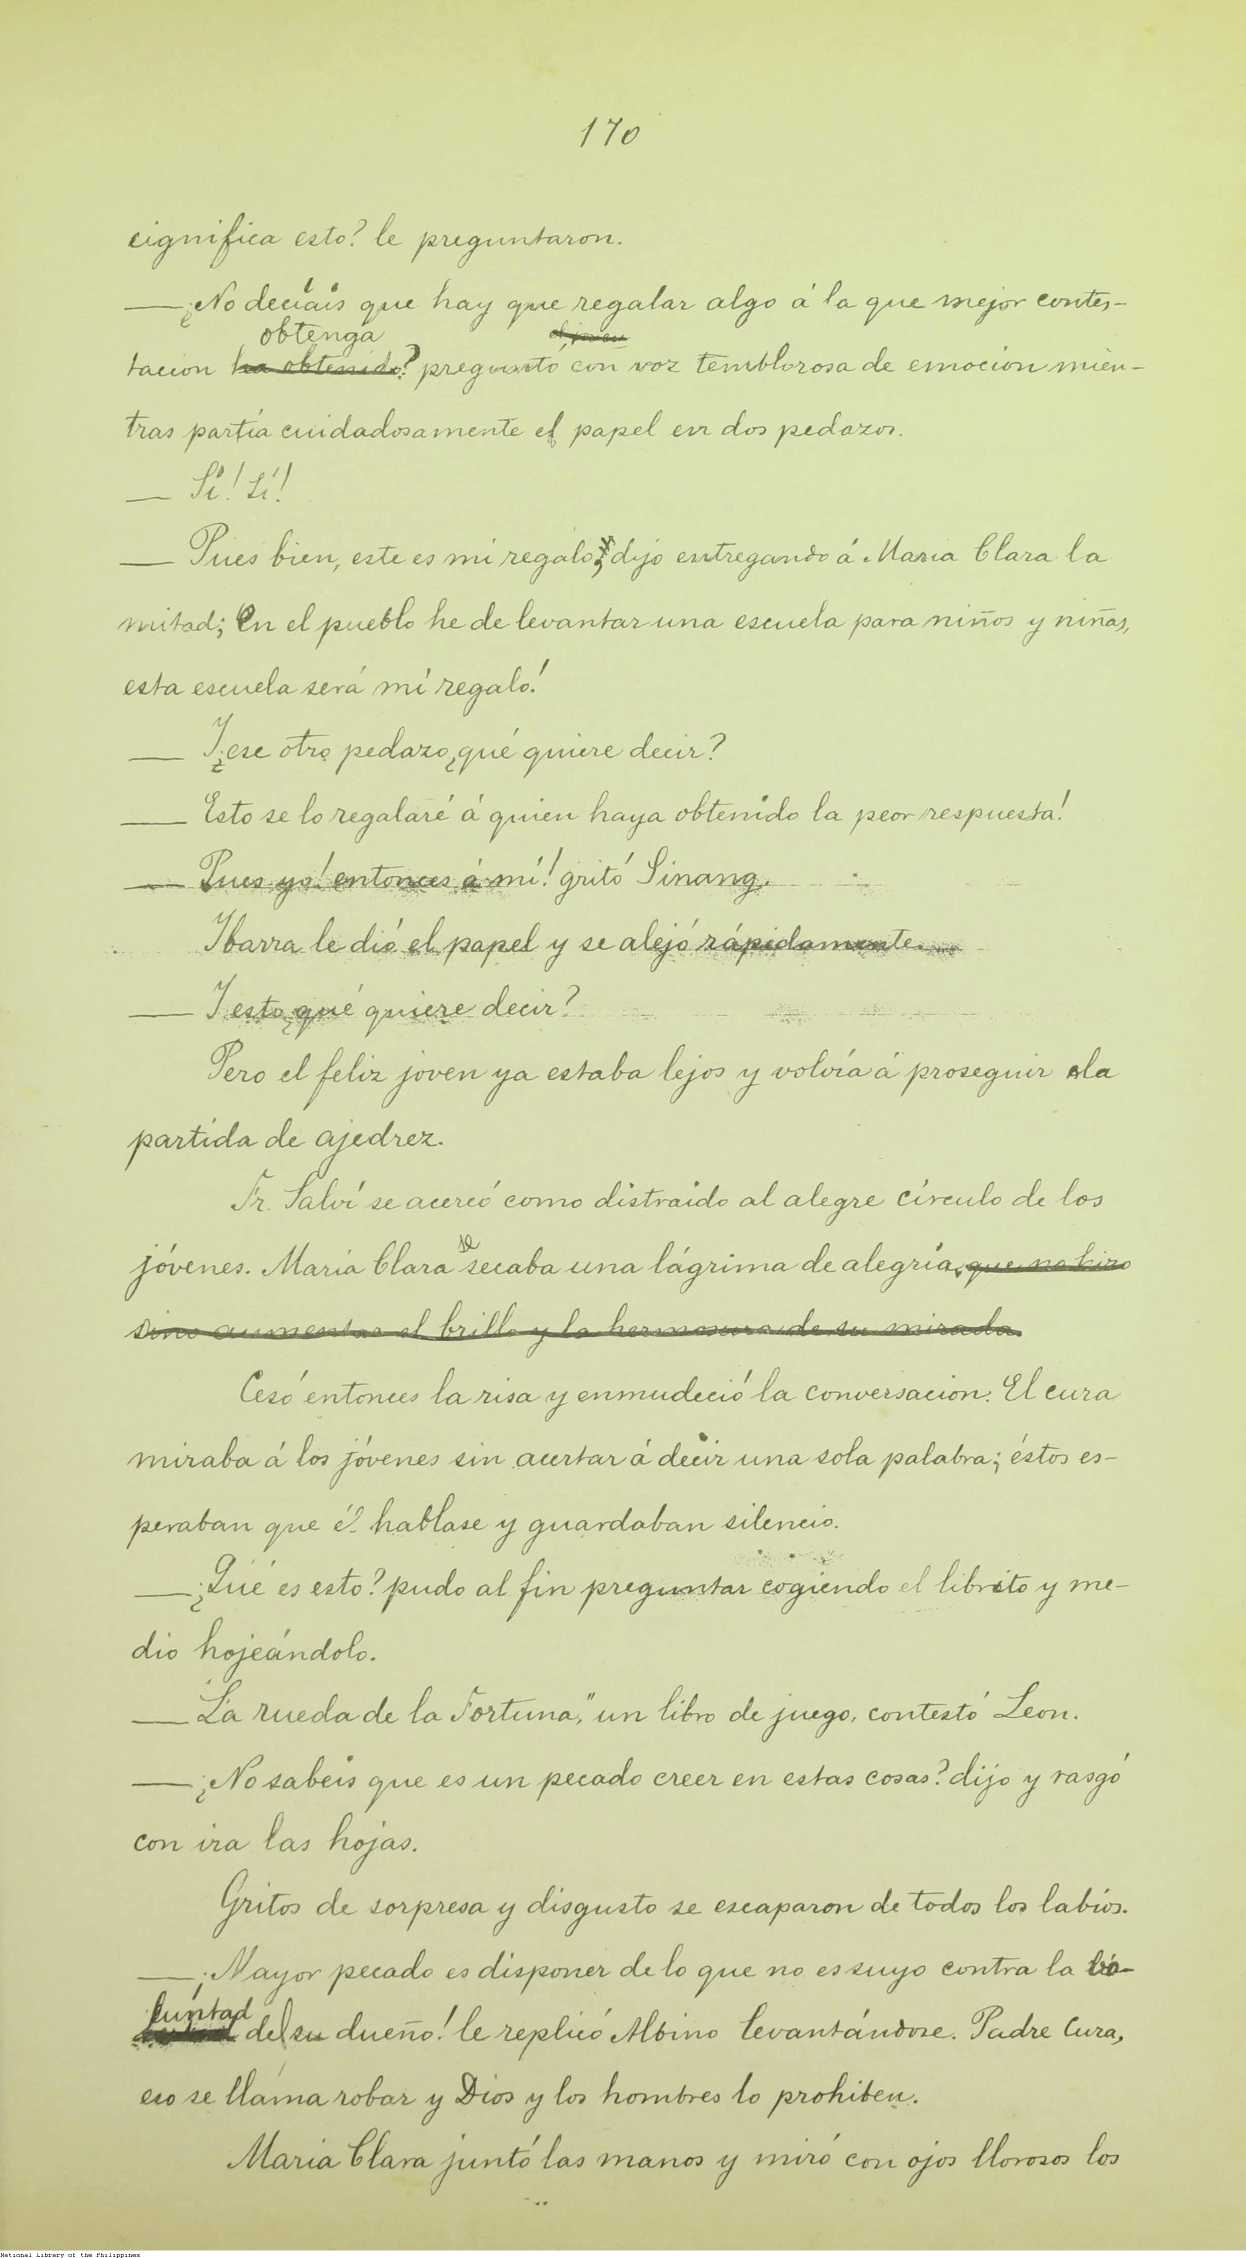 170
cignifica esto? le preguntaron.
— ¿No decíais que hay que regalar algo á la que mejor contes-
obtenga el joven
tacion ha obtenido? preguntó con voz temblorosa de emocion mien-
tras partía cuidadosamente el papel en dos pedazos.
— Sí! Sí!
— Pues bien, este es mi regalo; dijo entregando á María Clara la
mitad; En el pueblo he de levantar una escuela para niños y niñas,
esta escuela será mi regalo!
— Y ¿ese otro pedazo, ¿qué quiere decir?
— Esto se lo regalaré á quien haya obtenido la peor respuesta!
— Pues yo! entonces á mí! gritó Sinang.
Ibarra le dió el papel y se alejó rápidamente.
— Y esto ¿qué quiere decir?
Pero el feliz joven ya estaba lejos y volvía á proseguir la
partida de ajedrez.
Fr. Salví se acercó como distraido al alegre círculo de los
se
jóvenes. María Clara secaba una lágrima de alegría, que no hizo
sino aumentar el brillo y la hermosura de su mirada.
Cesó entonces la risa y enmudeció la conversacion. El cura
miraba á los jóvenes sin acertar á decir una sola palabra; éstos es-
peraban que él hablase y guardaban silencio.
— ¿Qué es esto? pudo al fin preguntar cogiendo el librito y me-
dio hojeándolo.
— "La rueda de la Fortuna," un libro de juego, contestó Leon.
— ¿No sabeis que es un pecado creer en estas cosas? dijo y rasgó
con ira las hojas.
Gritos de sorpresa y disgusto se escaparon de todos los labios.
— ¡Mayor pecado es disponer de lo que no es suyo contra la vo-
luntad
del su dueño! le replicó Albino levantándose. Padre Cura,
eso se llama robar y Dios y los hombres lo prohiben.
María Clara juntó las manos y miró con ojos llorosos los
National Library of the Philippines